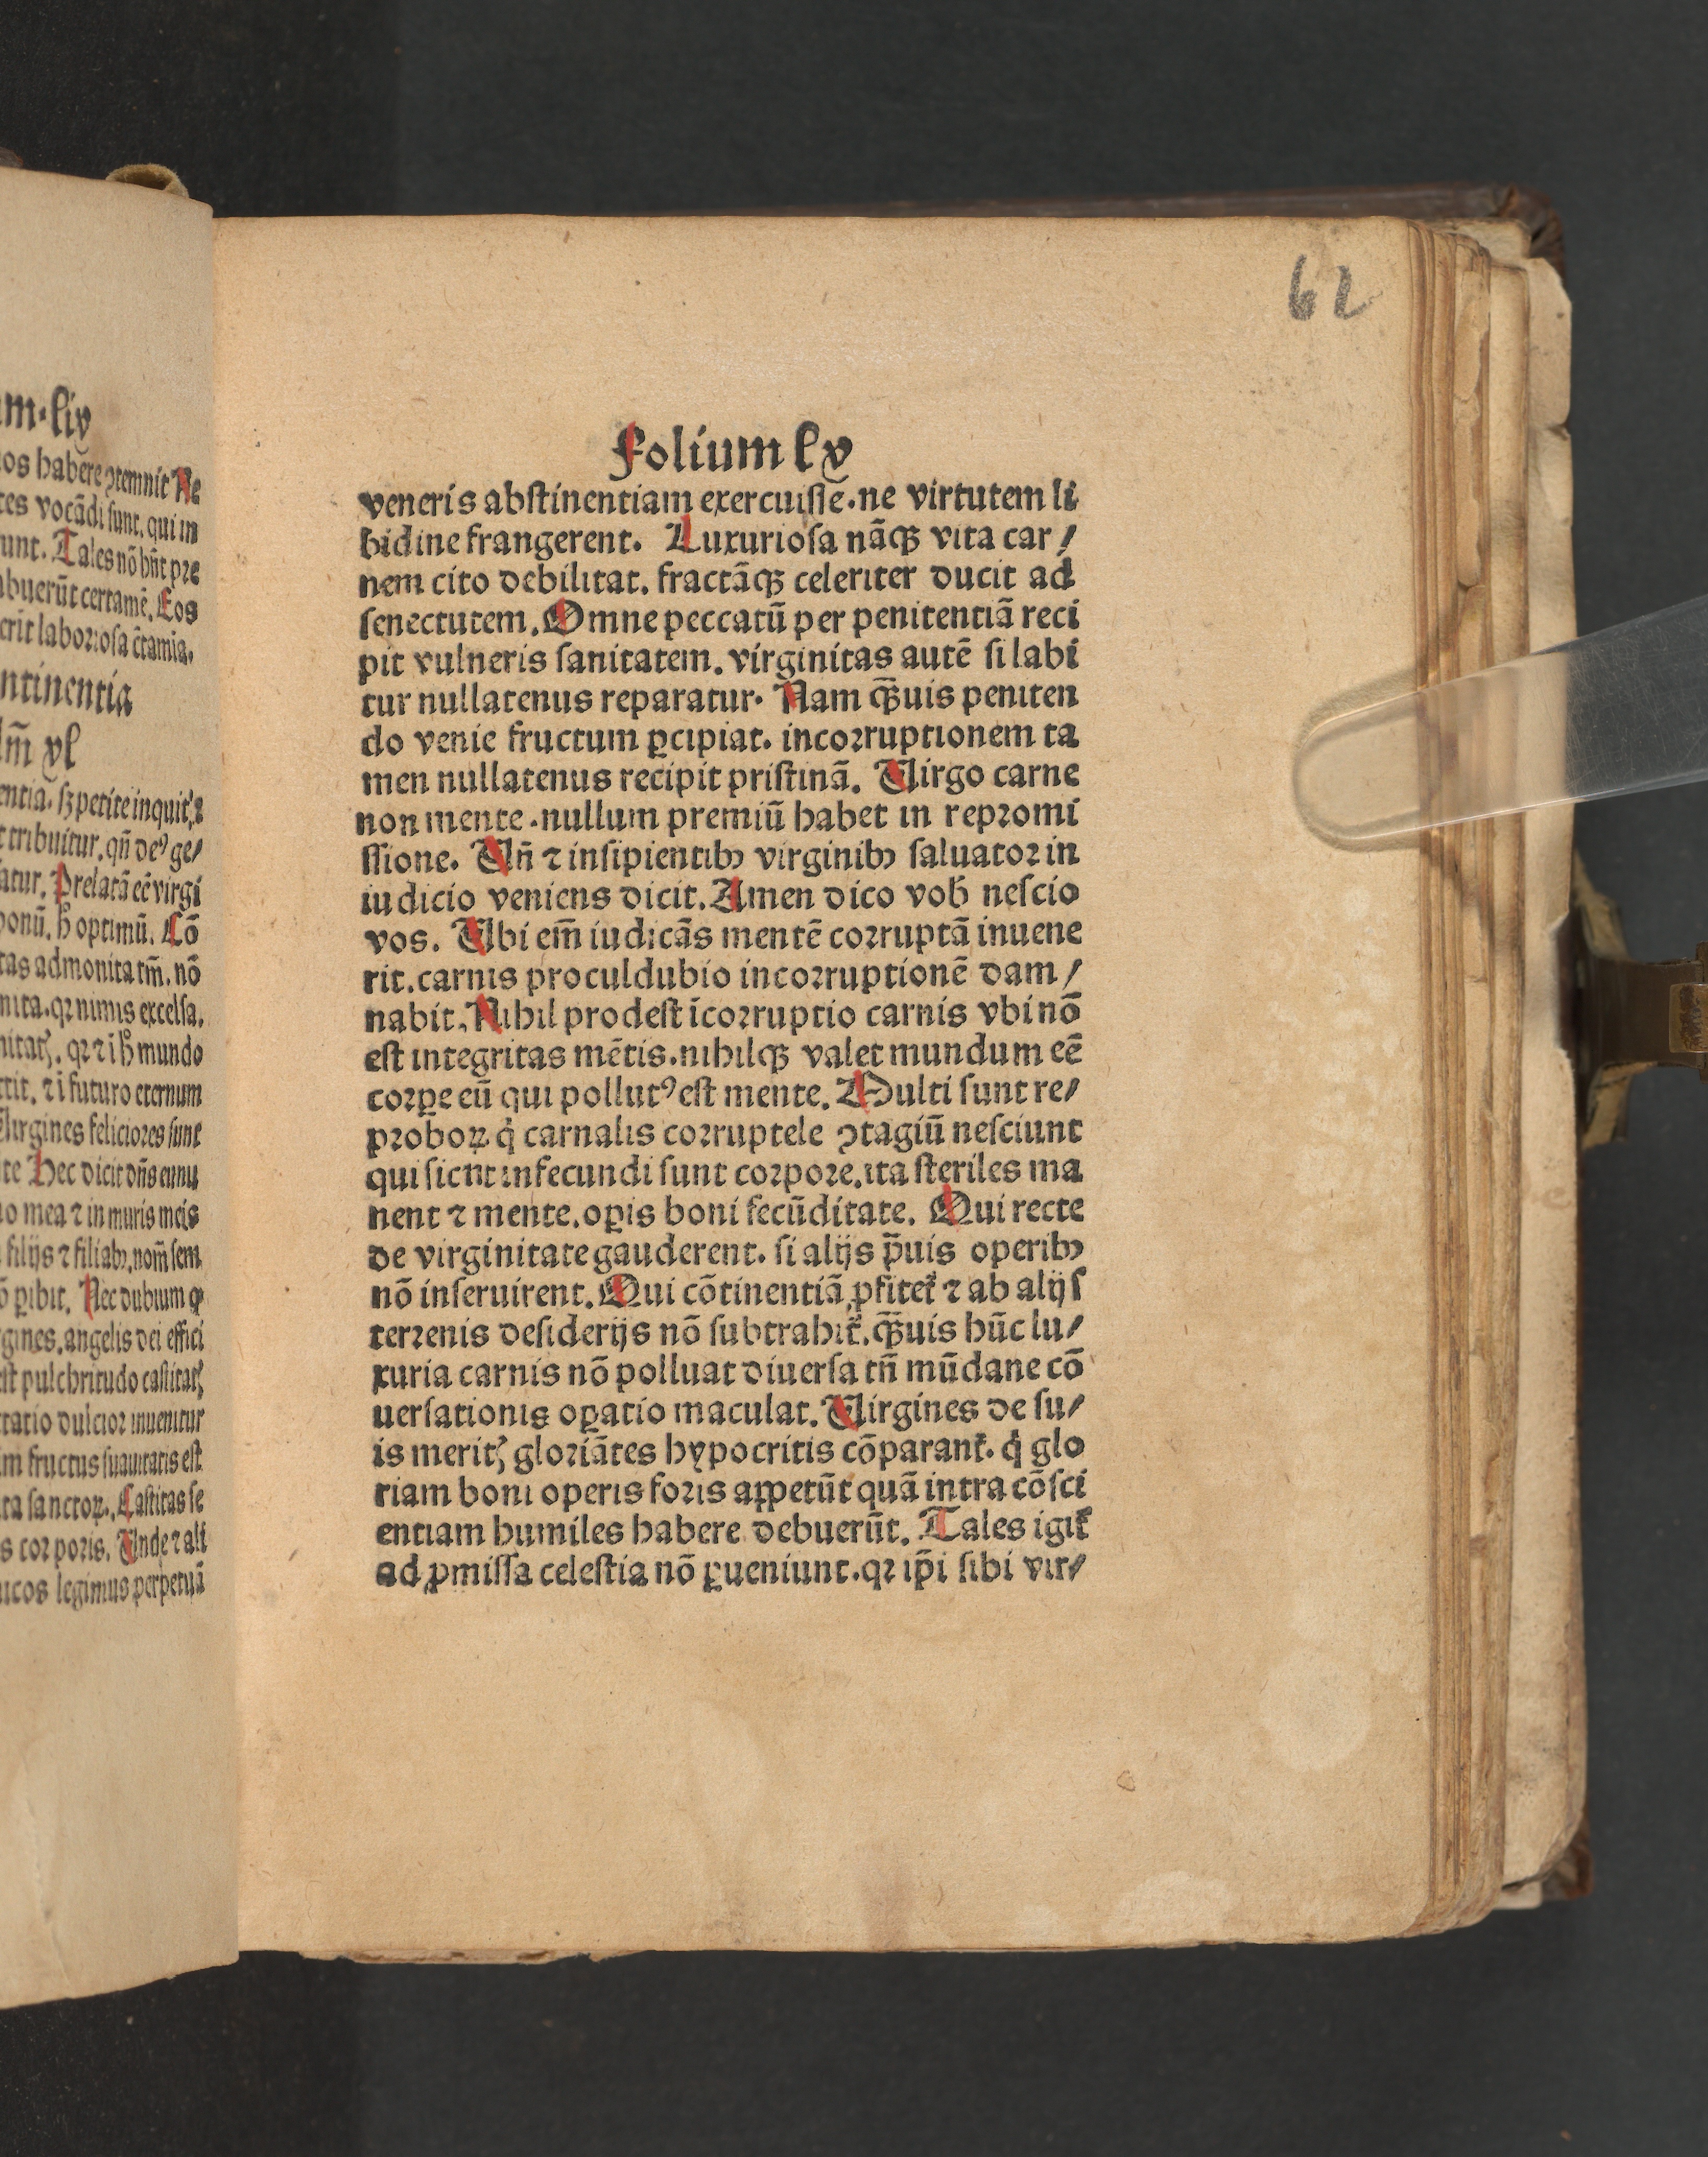 m.liv
os habere ꝯtemnit Ne
tes vocãdi sunt. qui in
unt. Tales nõ hñt pre
buerũt certamẽ. Eos
erit laboriosa c̃tamia.
ntinentia
lm̃ xl
entia. sꝫ petite inquit ⁊
t tribuitur. qñ deꝰ ge/
atur. Prelatã eẽ virgi
bonũ. h̊ optimũ. Cõ
tas admonita tm̃. nõ
nita. qꝛ nimis excelsa.
qꝛ ⁊ i h̊ mundo
⁊ ĩ futuro eternum
Virgines feliciores sunt
te Hec dicit dñs eunu
o mea ⁊ in muris meis
filijs ⁊ filiabꝫ. nom̃ sem
õ ꝑibit. Nec dubium ꝙ
gines. angelis dei effici
est pulchritudo castitatꝭ
tatio dulcior inuenitur
m fructus suauitatis est
ta sanctoꝝ. Castitas se
s corporis. Vnde ⁊ ali
icos legimus perpetuã
62
Folium lv
veneris abstinentiam exercuisse. ne virtutem li
bidine frangerent. Luxuriosa nãqꝫ vita car/
nem cito debilitat. fractãqꝫ celeriter ducit ad
senectutem. Omne peccatũ per penitentiã reci
pit vulneris sanitatem. virginitas autẽ si labi
tur nullatenus reparatur. Nam q̃ꝫuis peniten
do venie fructum ꝑcipiat. incorruptionem ta
men nullatenus recipit pristinã. Virgo carne
non mente. nullum premiũ habet in repromi
ssione. Vñ ⁊ insipientibꝫ virginibꝫ saluator in
iudicio veniens dicit. Amen dico vob̃ nescio
vos. Vbi em̃ iudicãs mentẽ corruptã inuene
rit. carnis proculdubio incorruptionẽ dam/
nabit. Nihil prodest ĩcorruptio carnis vbi nõ
est integritas mẽtis. nihilqꝫ valet mundum eẽ
corꝑe eũ qui pollutꝰ est mente. Multi sunt re/
proboꝝ q̇ carnalis corruptele ꝯtagiũ nesciunt
qui sicut infecundi sunt corpore. ita steriles ma
nent ⁊ mente. oꝑis boni fecũditate. Qui recte
de virginitate gauderent. si alijs p̃uis operibꝫ
nõ inseruirent. Qui cõtinentiã ꝓfitet᷑ ⁊ ab alijs
terrenis desiderijs nõ subtrahit᷑. q̃ꝫuis hũc lu/
xuria carnis nõ polluat diuersa tñ mũdane cõ
uersationis oꝑatio maculat. Virgines de su/
is meritꝭ gloriãtes hypocritis cõparant᷑. q̇ glo
riam boni operis foris appetũt quã intra cõsci
entiam humiles habere debuerũt. Tales igit᷑
ad ꝓmissa celestia nõ ꝑueniunt. qꝛ ip̃i sibi vir/